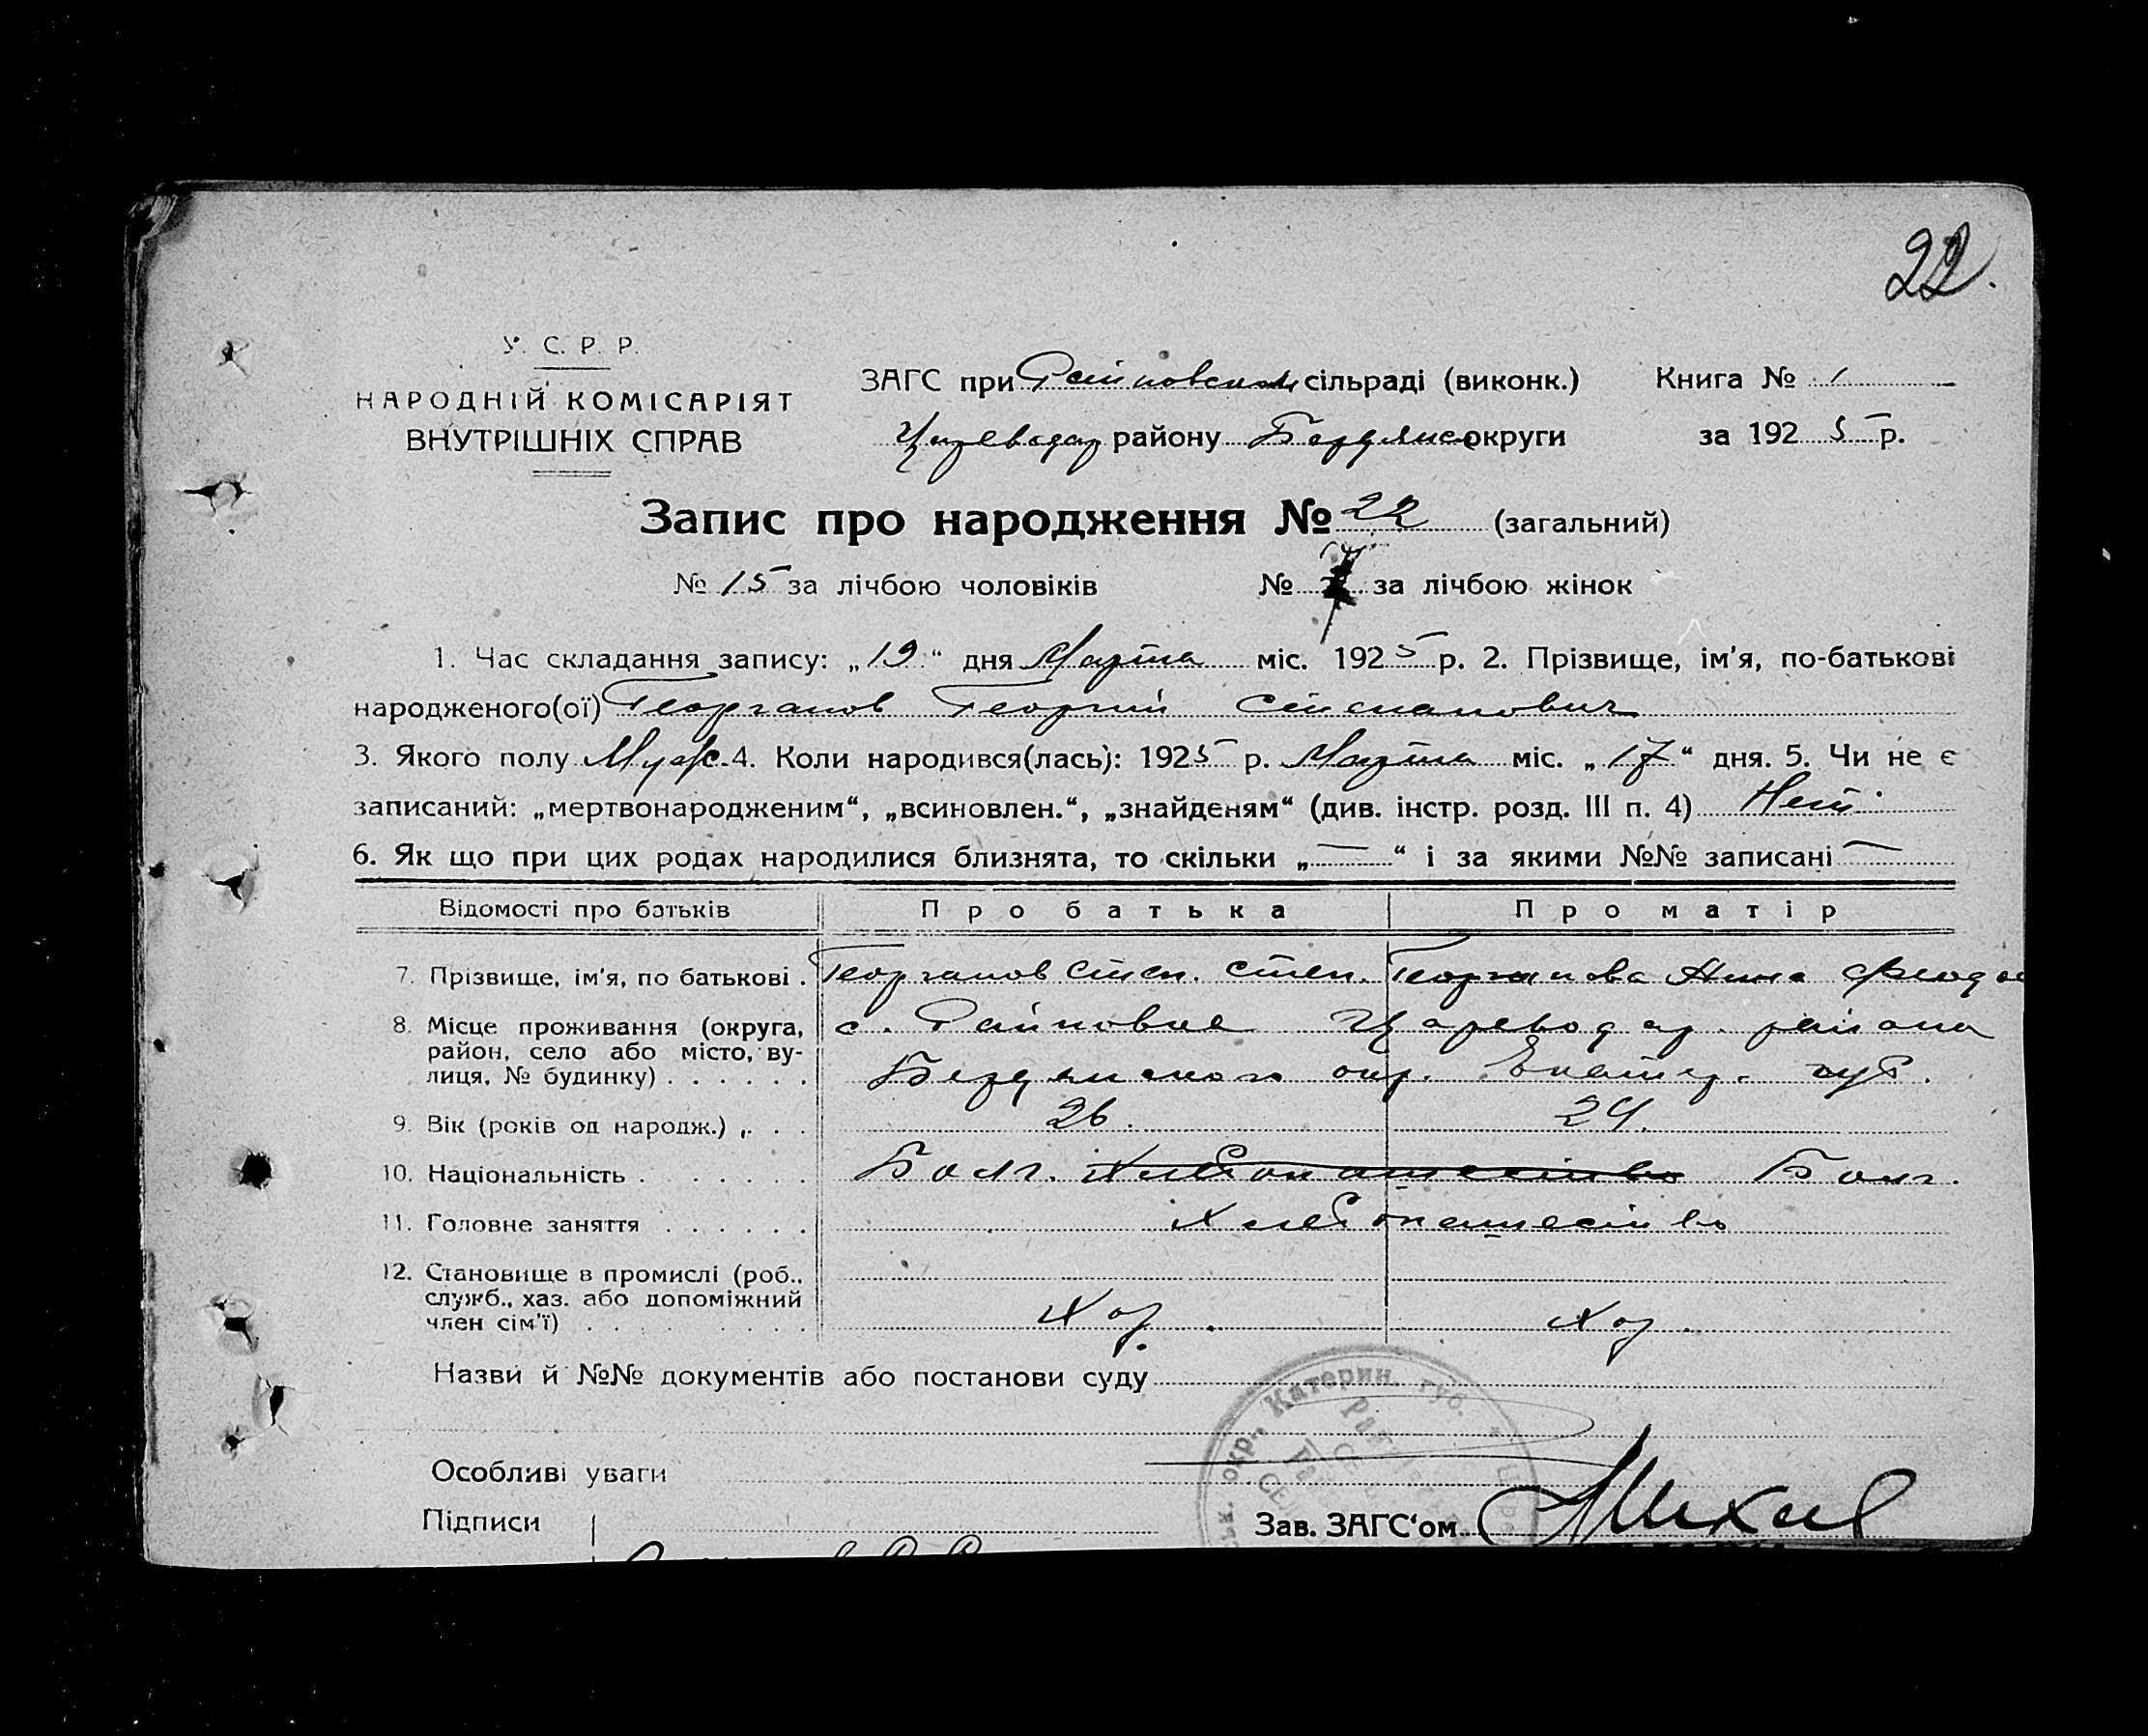 22.
У. С. Р. Р.
НАРОДНІЙ КОМІСАРІЯТ
ВНУТРІШНІХ СПРАВ
ЗАГС при Райновском сільраді (виконк.) Книга № 1
Цареводар району Бердянс округи за 1925 р.
Запис про народження № 22 (загальний)
№ 15 за лічбою чоловіків № 7 за лічбою жінок
1. Час складання запису: „19“ дня Марта міс. 1925 р. 2. Прізвище, ім'я, по-батькові
народженого(ої) Георганов Георгий Степанович
3. Якого полу Муж. 4. Коли народився(лась): 1925 р. Марта міс. „17“ дня. 5. Чи не є
записаний: „мертвонародженим“, „всиновлен.“, „знайденям“ (див. інстр. розд. III п. 4) Нет.
6. Як що при цих родах народилися близнята, то скільки „—“ і за якими №№ записані —
Відомості про батьків Про батька Про матір
7. Прізвище, ім'я, по батькові . Георганов Степ. Степ. Георганова Анна Феод
8. Місце проживання (округа, район, село або місто, вулиця, № будинку) . . . . . . с. Райновка Цареводар. района
Бердянского окр. Екатер. губ.
9. Вік (років од народж.) . . . 26. 24.
10. Національність . . . . . . . Болг. Хлебопашество Болг.
11. Головне заняття . . . . . . Хлебопашество
12. Становище в промислі (роб.,
служб., хаз. або допоміжний
член сім'ї) . . . . . . . Хоз. Хоз.
Назви й №№ документів або постанови суду
Катерин. губ.
окр.,
Особливі уваги
Підписи Зав. ЗАГС'ом